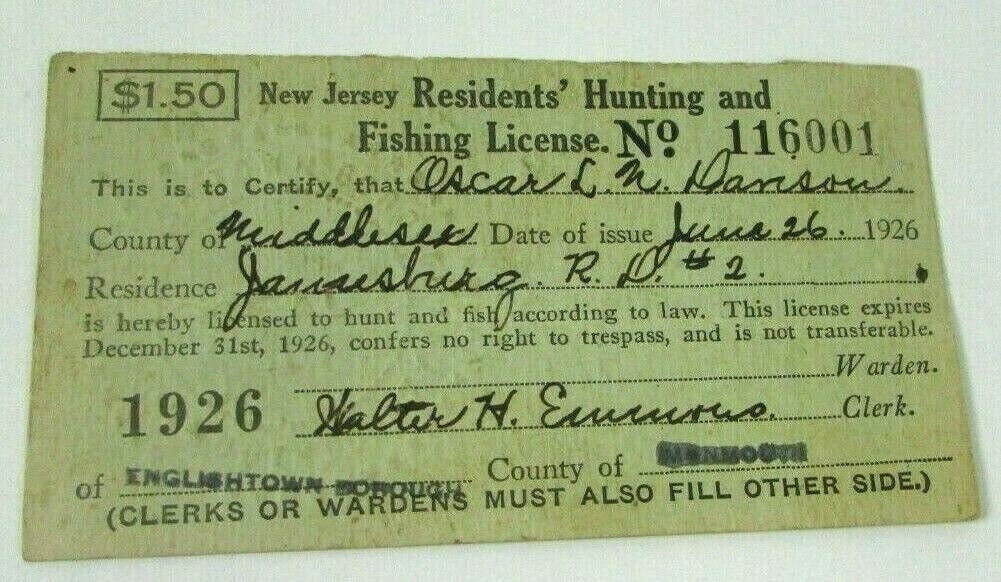 $1.50 New Jersey Residents' Hunting and
Fishing License. No 116001
This is to Certify, that Oscar L. N. Davison
County of Middlesex Date of issue June 26. 1926
Residence Jamesburg R. D. #2.
is hereby licensed to hunt and fish according to law. This license expires
December 31st, 1926, confers no right to trespass, and is not transferable.
Warden.
1926 Walter H. Emmons. Clerk.
of ENGLISHTOWN BOROUGH County of MONMOUTH
(CLERKS OR WARDENS MUST ALSO FILL OTHER SIDE.)